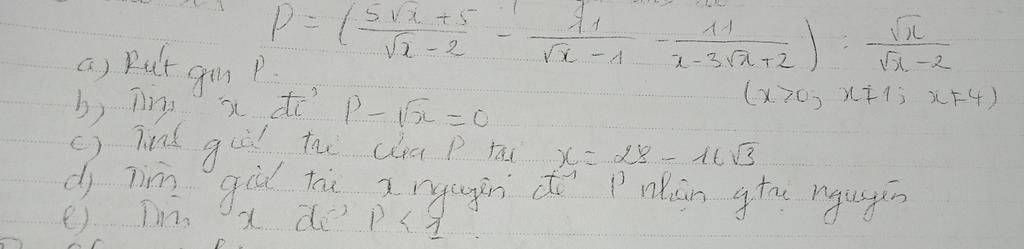 P = ( (5√x + 5)/(√x - 2) - 11/(√x - 1) - 11/(x - 3√x + 2) ) : √x/(√x - 2)
a) Rút gọn P.
(x > 0; x ≠ 1; x ≠ 4)
b) Tìm x để P - √x = 0
c) Tính giá trị của P tại x = 28 - 16√3
d) Tìm giá trị x nguyên để P nhận g trị nguyên
e) Tìm x để P < 1